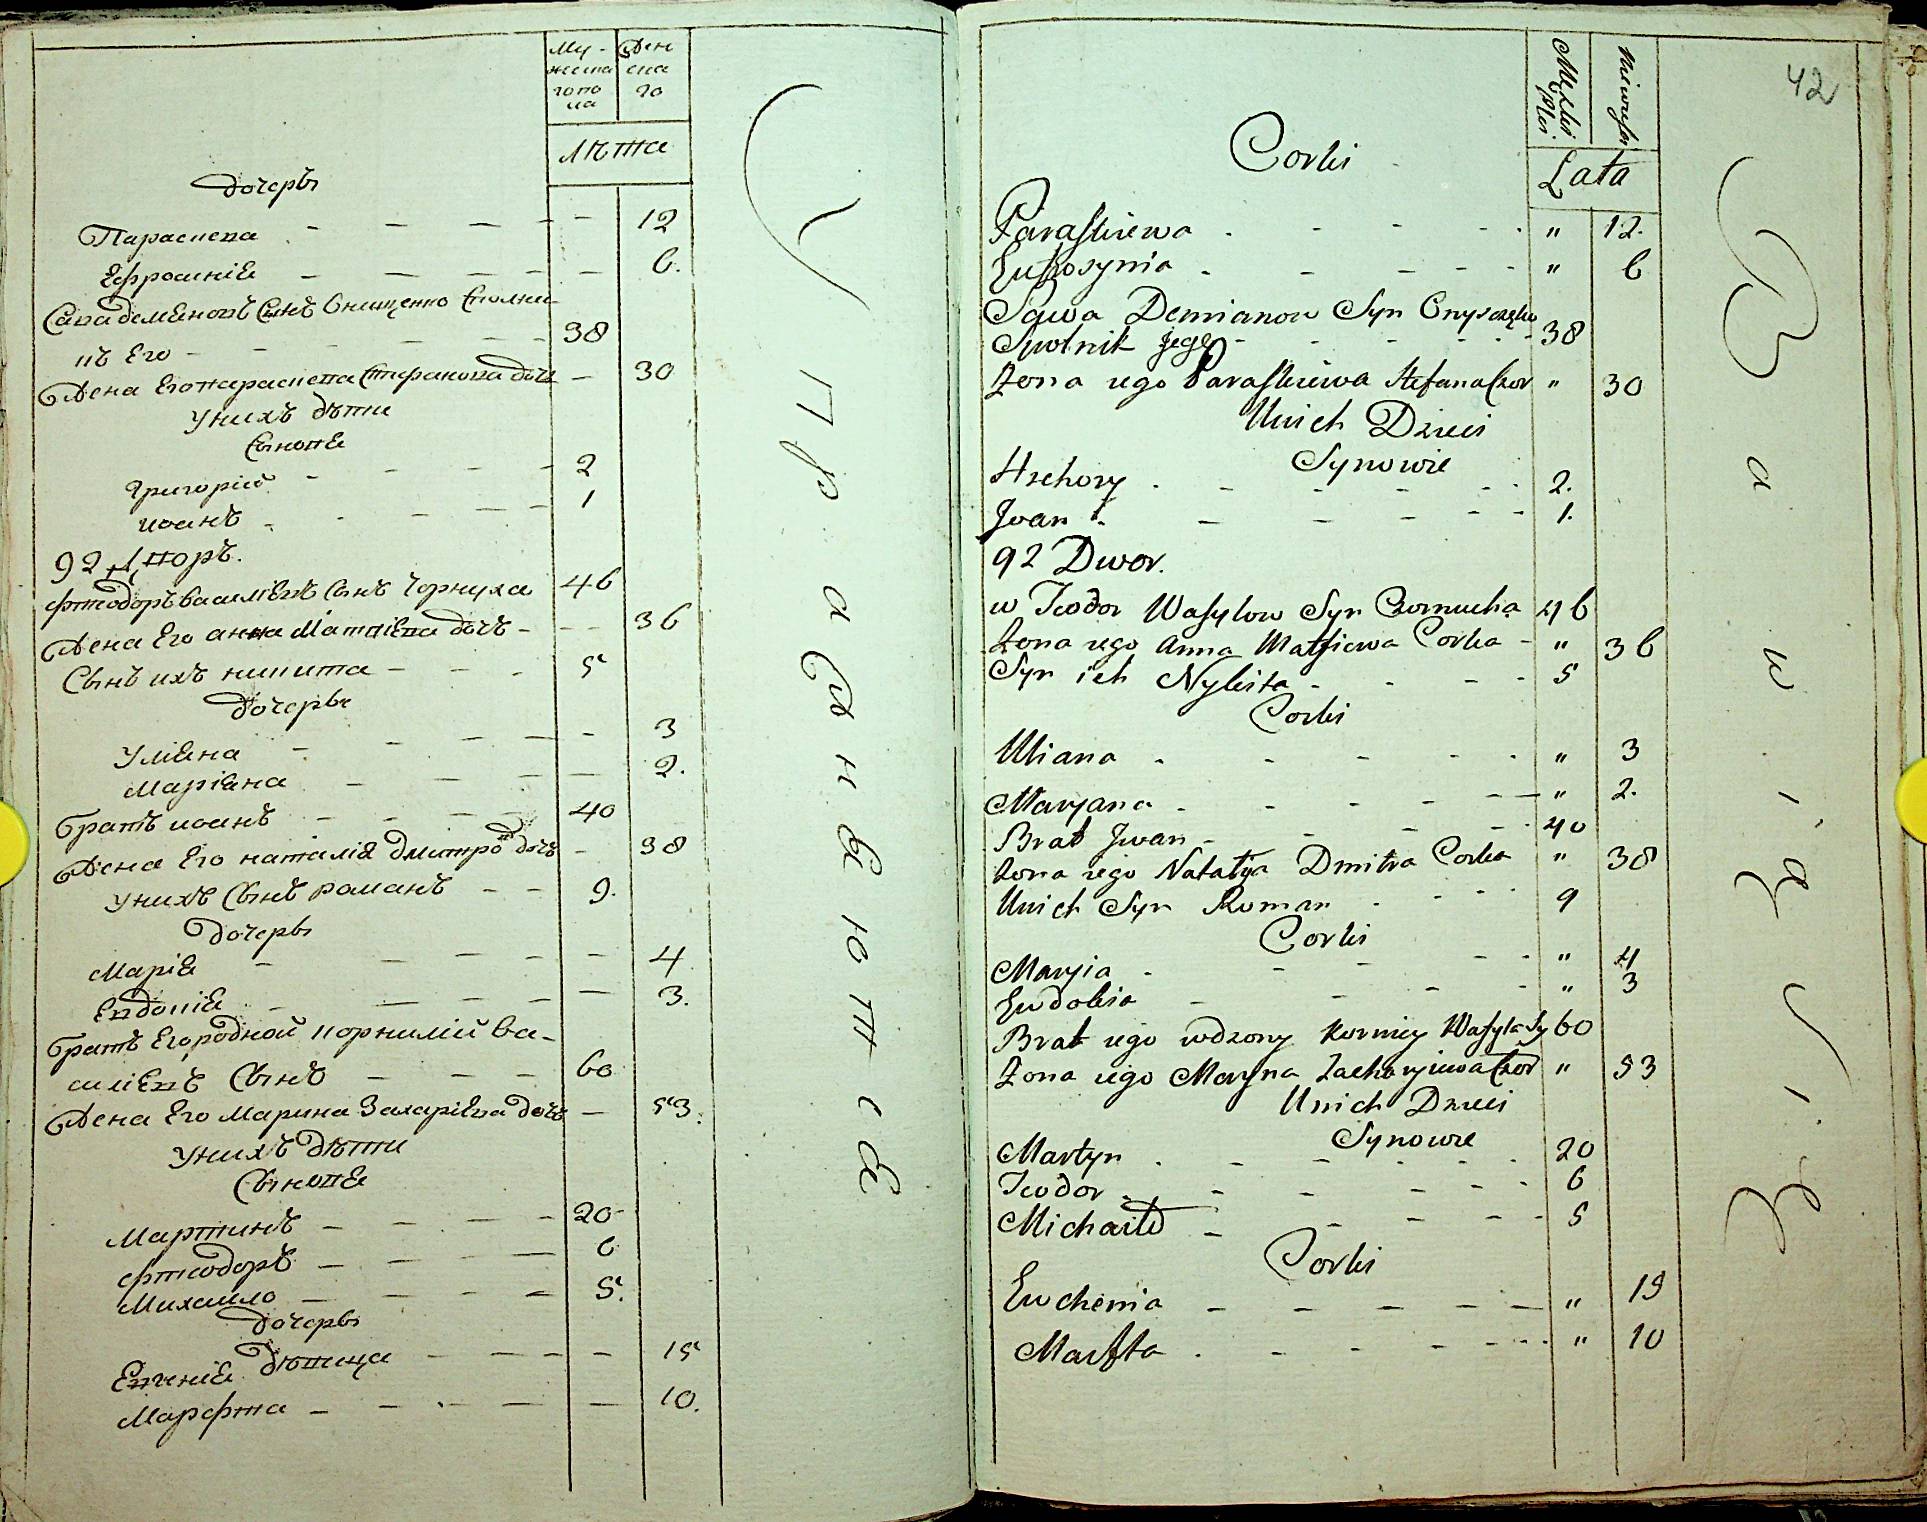 Му-
жеска
го по
ла
Жен
ска
го
Лѣта
дочеры
Параскева 12
Ефросинія 6.
Сава демяновъ Сынъ Онищенко Сполни-
къ Его 38
Жена Его параскева Стефанова дочь 30
у нихъ дѣти
Сыновя
Григорій 2
иоанъ 1
92 Дворъ.
Фтеодоръ василіевъ Сынъ Чорнуха 46
Жена Его анна Матвіева дочь 36
Сынъ ихъ никита 5
дочеры
Уліяна 3
Маріяна 2.
братъ иоанъ 40
Жена Его наталія дмитров дочь 38
у нихъ Сынъ романъ 9.
Дочеры
Марія 4
Евдокія 3.
братъ Его родной корнилій Ва-
силіевъ Сынъ 60
Жена Его Марина Захаріева дочь 53.
у нихъ дѣти
Сыновя
Мартинъ 20
Фтеодоръ 6
Михаило 5.
дочеры
Евгенія дѣвица 15
Марфта 10.
Упражняются
42
Męzkei
Płci
Lata
Corki
Paraskiewa " 12.
Eufrosynia " 6
Sawa Demianow Syn Onyszczęko
Spolnik jego 38
Zona iego Paraskiewa Stefana Cor " 30
U nich Dzieci
Synowie
Hrehory 2.
Jwan 1.
92 Dwor.
w Teodor Wasylow Syn Czornucha 46
Zona iego Anna Matfiewa Corka " 36
Syn ich Nykita 5
Corki
Uliana " 3
Maryana " 2.
Brat Jwan 40
Zona iego Natalya Dmitra Corka " 38
U nich Syn Roman 9
Corki
Maryia " 4
Ewdokia " 3
Brat iego rodzony Korniey Wasyla Sy 60
Zona iego Maryna Zacharyiewa Cor " 53
U nich Dzieci
Synowie
Martyn 20
Teodor 6
Michaiło 5
Corki
Euchenia " 15
Marfta " 10
Bawią się